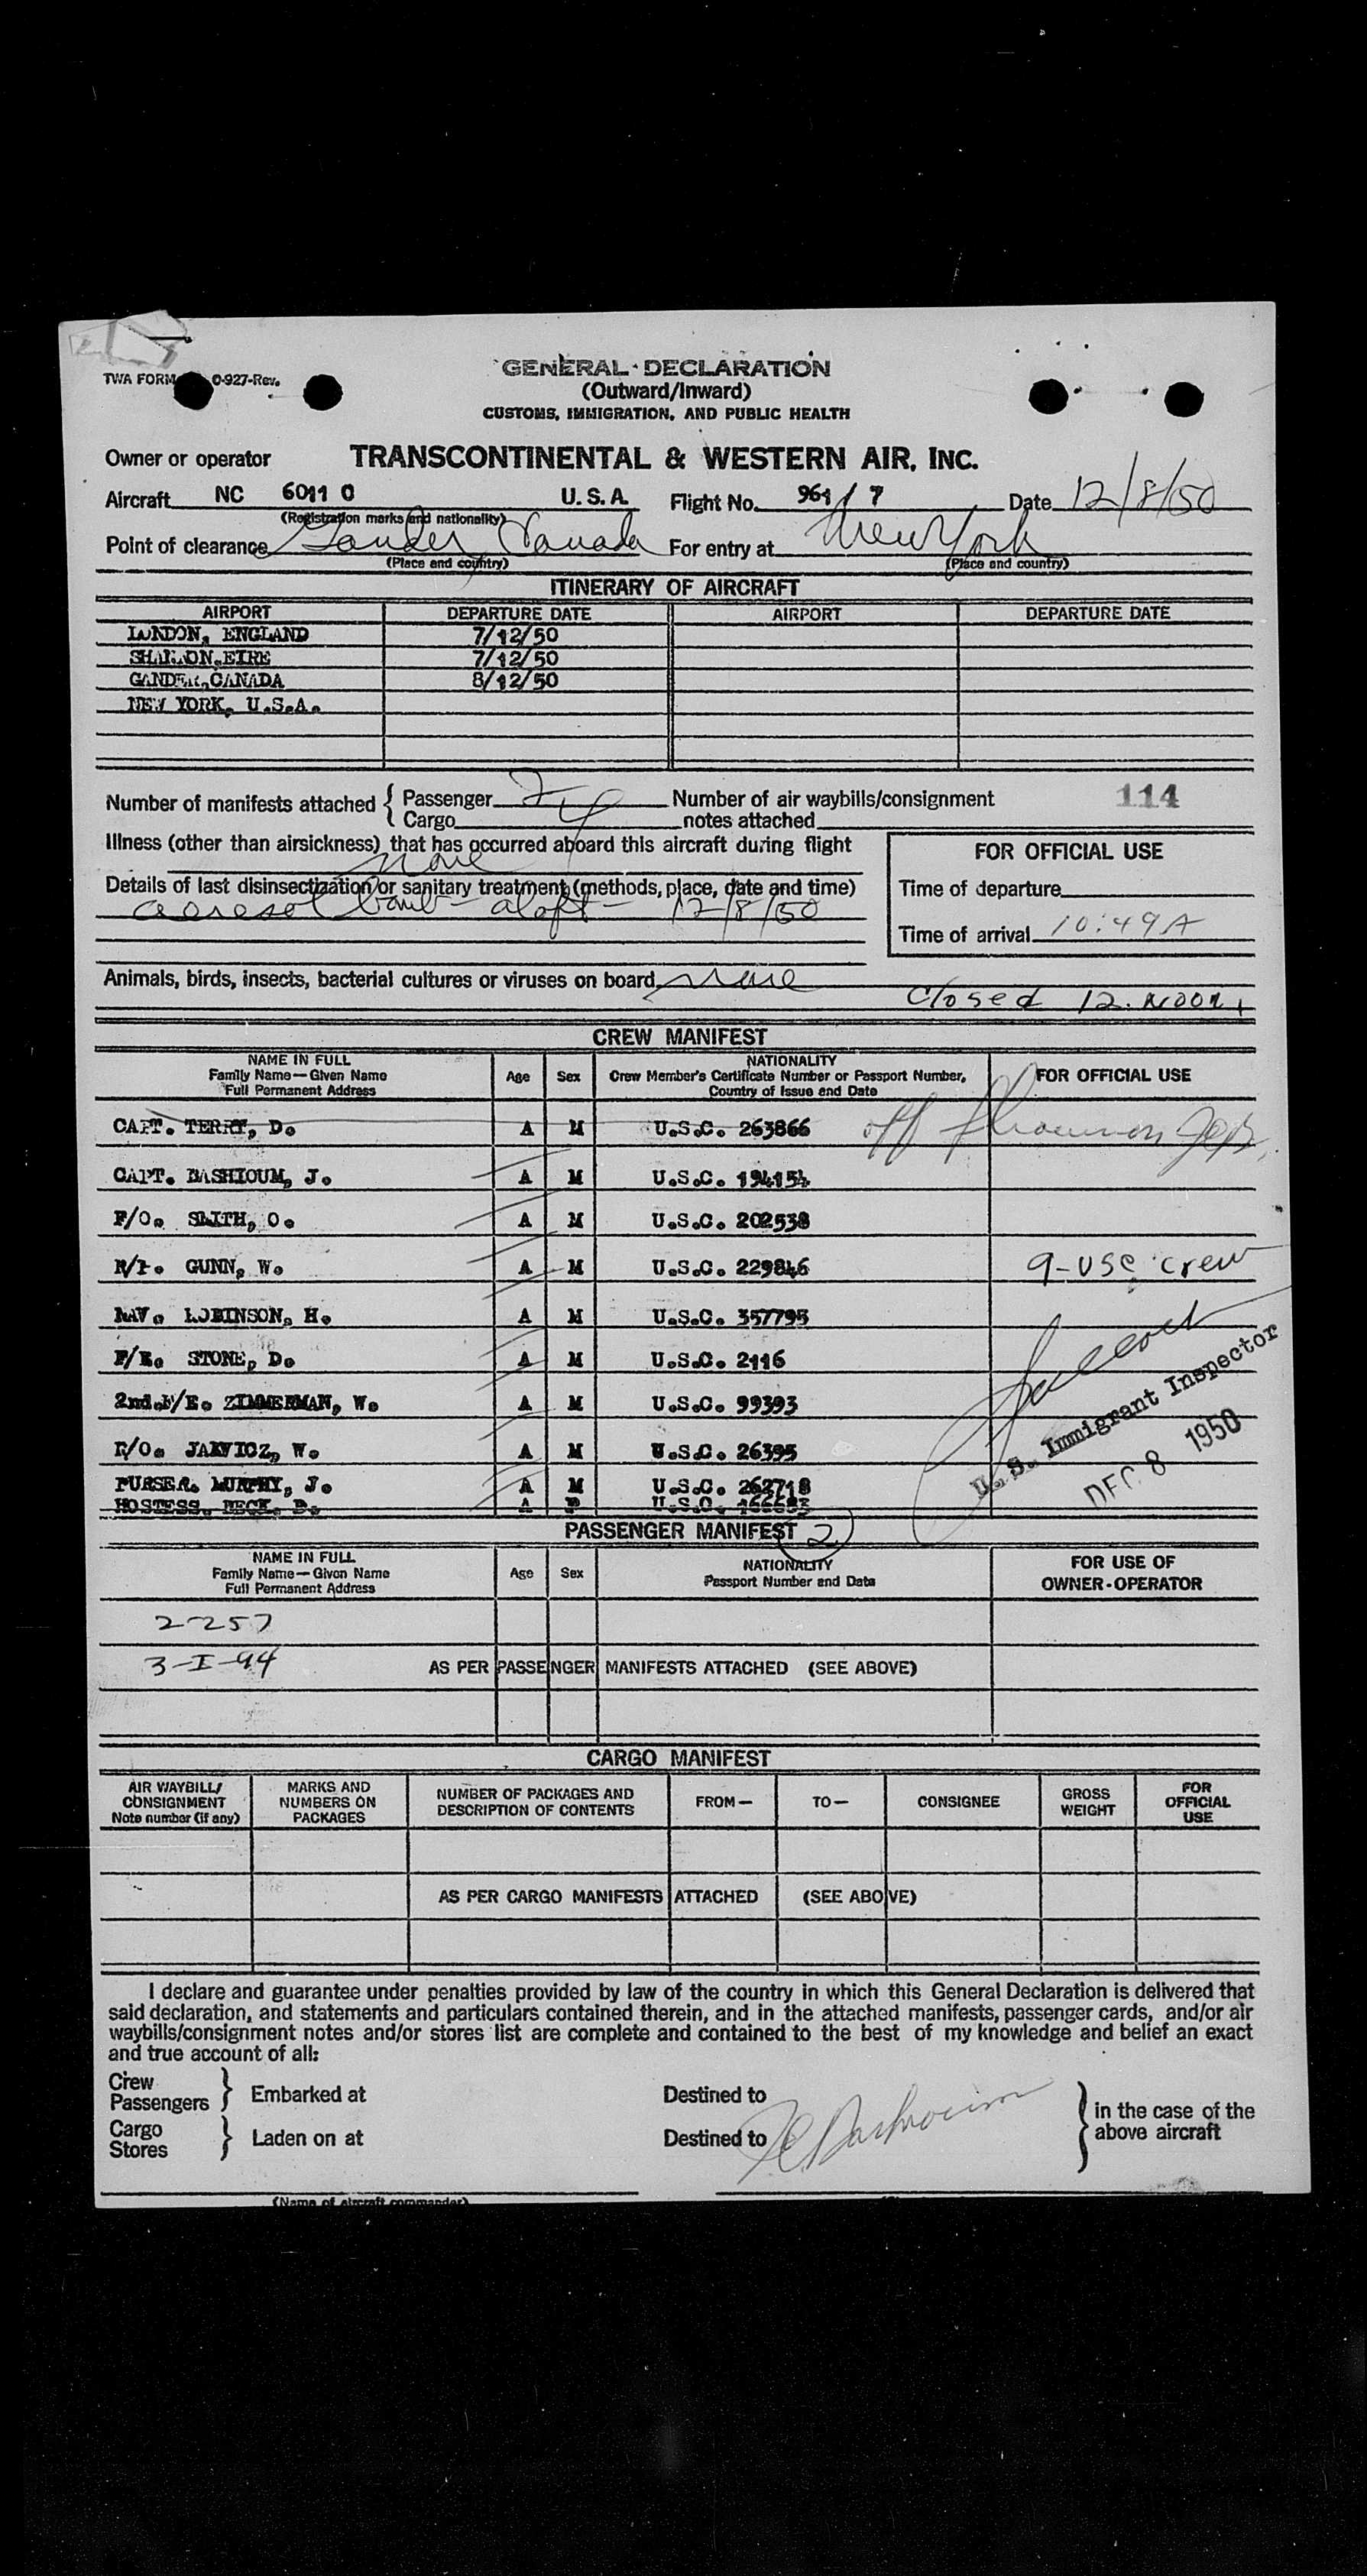 TWA FORM 0-927-Rev.
GENERAL DECLARATION
(Outward/Inward)
CUSTOMS, IMMIGRATION, AND PUBLIC HEALTH
Owner or operator TRANSCONTINENTAL & WESTERN AIR, INC.
Aircraft NC 6011 0 U.S.A. Flight No. 961/7 Date 12/8/50
(Registration marks and nationality)
Point of clearance Gander, Canada For entry at New York
(Place and country) (Place and country)
ITINERARY OF AIRCRAFT
AIRPORT DEPARTURE DATE AIRPORT DEPARTURE DATE
LONDON, ENGLAND 7/12/50
SHANNON, EIRE 7/12/50
GANDER, CANADA 8/12/50
NEW YORK, U.S.A.
Number of manifests attached { Passenger 2 Number of air waybills/consignment 114
Cargo 4 notes attached
Illness (other than airsickness) that has occurred aboard this aircraft during flight
none
FOR OFFICIAL USE
Details of last disinsectization or sanitary treatment (methods, place, date and time)
aeresol bomb - aloft - 12/8/50
Time of departure
Time of arrival 10:49A
Animals, birds, insects, bacterial cultures or viruses on board none
Closed 12. Noon
CREW MANIFEST
NAME IN FULL
Family Name—Given Name
Full Permanent Address
Age Sex
NATIONALITY
Crew Member's Certificate Number or Passport Number,
Country of Issue and Date
FOR OFFICIAL USE
CAPT. TERRY, D. A M U.S.C. 263866 off Shannon
CAPT. BASHIOUM, J. A M U.S.C. 194154
F/O. SMITH, O. A M U.S.C. 202538
GUNN, W. A M U.S.C. 229846 9-USC crew
NAV. ROBINSON, H. A M U.S.C. 357795
F/E. STONE, D. A M U.S.C. 2116
2nd.F/E. ZIMMERMAN, W. A M U.S.C. 99393
R/O. JARVICZ, W. A M U.S.C. 26395
PURSER. MURPHY, J. A M U.S.C. 262718
HOSTESS. BECK, D. A F U.S.C. 166683
U.S. Immigrant Inspector
DEC 8 1950
PASSENGER MANIFEST 2
NAME IN FULL
Family Name—Given Name
Full Permanent Address
Age Sex
NATIONALITY
Passport Number and Date
FOR USE OF
OWNER-OPERATOR
2-257
3-I-94 AS PER PASSENGER MANIFESTS ATTACHED (SEE ABOVE)
CARGO MANIFEST
AIR WAYBILL/
CONSIGNMENT
Note number (if any)
MARKS AND
NUMBERS ON
PACKAGES
NUMBER OF PACKAGES AND
DESCRIPTION OF CONTENTS
FROM—
TO—
CONSIGNEE
GROSS
WEIGHT
FOR
OFFICIAL
USE
AS PER CARGO MANIFESTS ATTACHED (SEE ABOVE)
I declare and guarantee under penalties provided by law of the country in which this General Declaration is delivered that
said declaration, and statements and particulars contained therein, and in the attached manifests, passenger cards, and/or air
waybills/consignment notes and/or stores list are complete and contained to the best of my knowledge and belief an exact
and true account of all:
Crew
Passengers } Embarked at Destined to
Cargo
Stores } Laden on at Destined to
} in the case of the
above aircraft
(Name of aircraft commander)